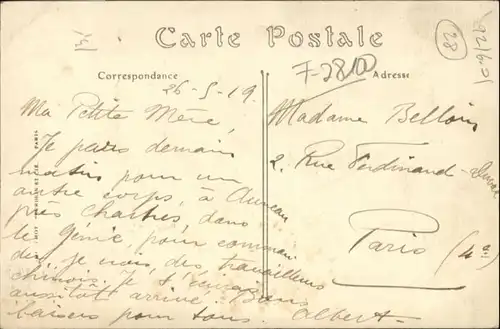 Carte Postale
28
F-2800
Correspondance
Adresse
26-5-19.
Ma Petite Mère,
Je pars demain
matin pour un
autre corps, à Auneau
près Chartres dans
le Génie pour comman
der, je crois, des travailleurs
chinois. Je t'écrirai
aussitôt arrivé. Bons
baisers pour tous. Albert.
Madame Bellois
2, Rue Ferdinand-Duval
Paris (4e)